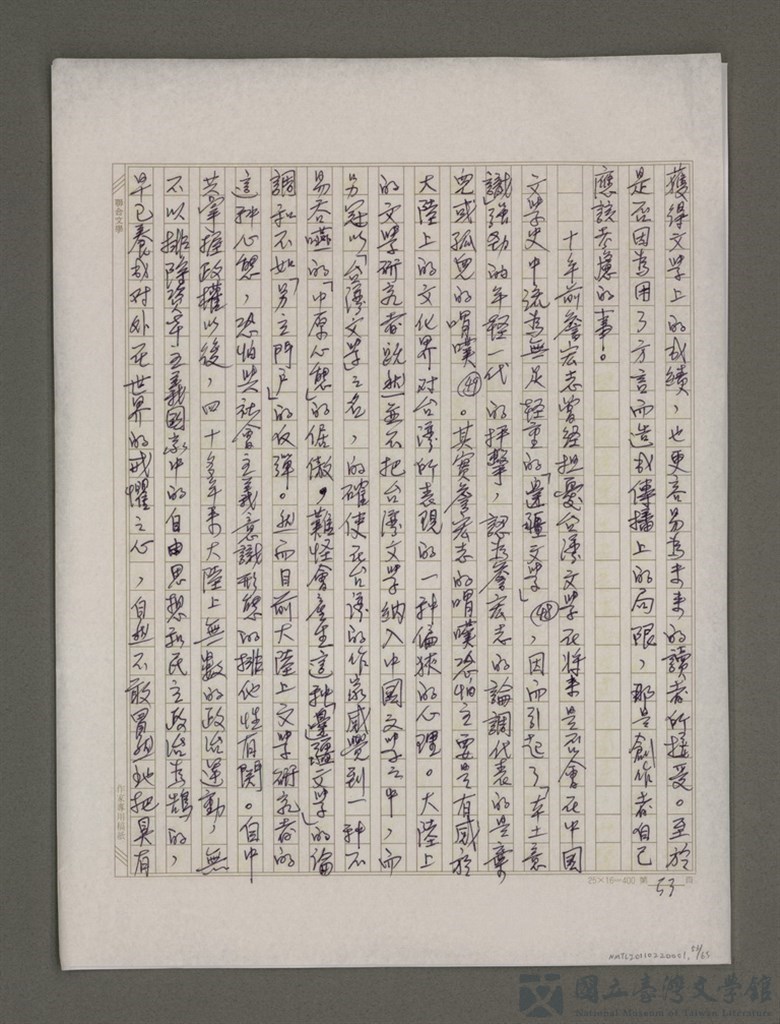 獲得文學上的成績，也更容易為未來的讀者所接受。至於
是否因為用了方言而造成傳播上的局限，那是創作者自己
應該考慮的事。
十年前詹宏志曾經担憂台灣文學在將來是否會在中國
文學史中流為無足輕重的「邊疆文學」㊽，因而引起了「本土意
識」強勁的年輕一代的抨擊，認為詹宏志的論調代表的是棄
兒或孤兒的喟嘆㊾。其實詹宏志的喟嘆恐怕主要是有感於
大陸上的文化界对台灣所表現的一种偏狹的心理。大陸上
的文學研究者既然並不把台灣文學納入中國文學之中，而
另冠以「台灣文學」之名，的確使在台灣的作家感覺到一种不
易吞嚥的「中原心態」的倨傲，難怪會產生這种「邊疆文學」的論
調和不如「另立門戶」的反彈。然而目前大陸上文學研究者的
這种心態，恐怕與社會主義意識形態的排他性有関。自中
共掌握政權以後，四十多年來大陸上無數的政治運動，無
不以排除資本主義國家中的自由思想和民主政治為鵠的，
早已養成对外在世界的戒懼之心，自然不敢冒然地把具有
聯合文學
作家專用稿紙
25×16＝400 第 53 頁
NMTL20110220001, 54/65
國立臺灣文學館
National Museum of Taiwan Literature